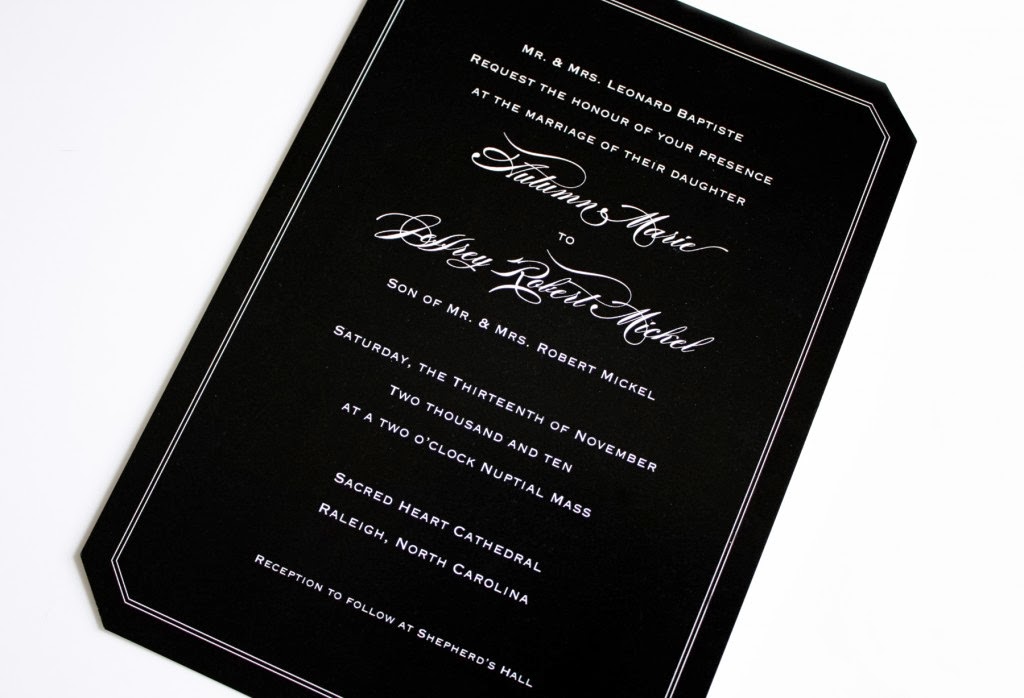 Mr. & Mrs. Leonard Baptiste
Request the honour of your presence
at the marriage of their daughter
Autumn Marie
to
Jeffrey Robert Michel
Son of Mr. & Mrs. Robert Mickel
Saturday, the Thirteenth of November
two thousand and ten
at a two o'clock Nuptial Mass
Sacred Heart Cathedral
Raleigh, North Carolina
Reception to follow at Shepherd's Hall